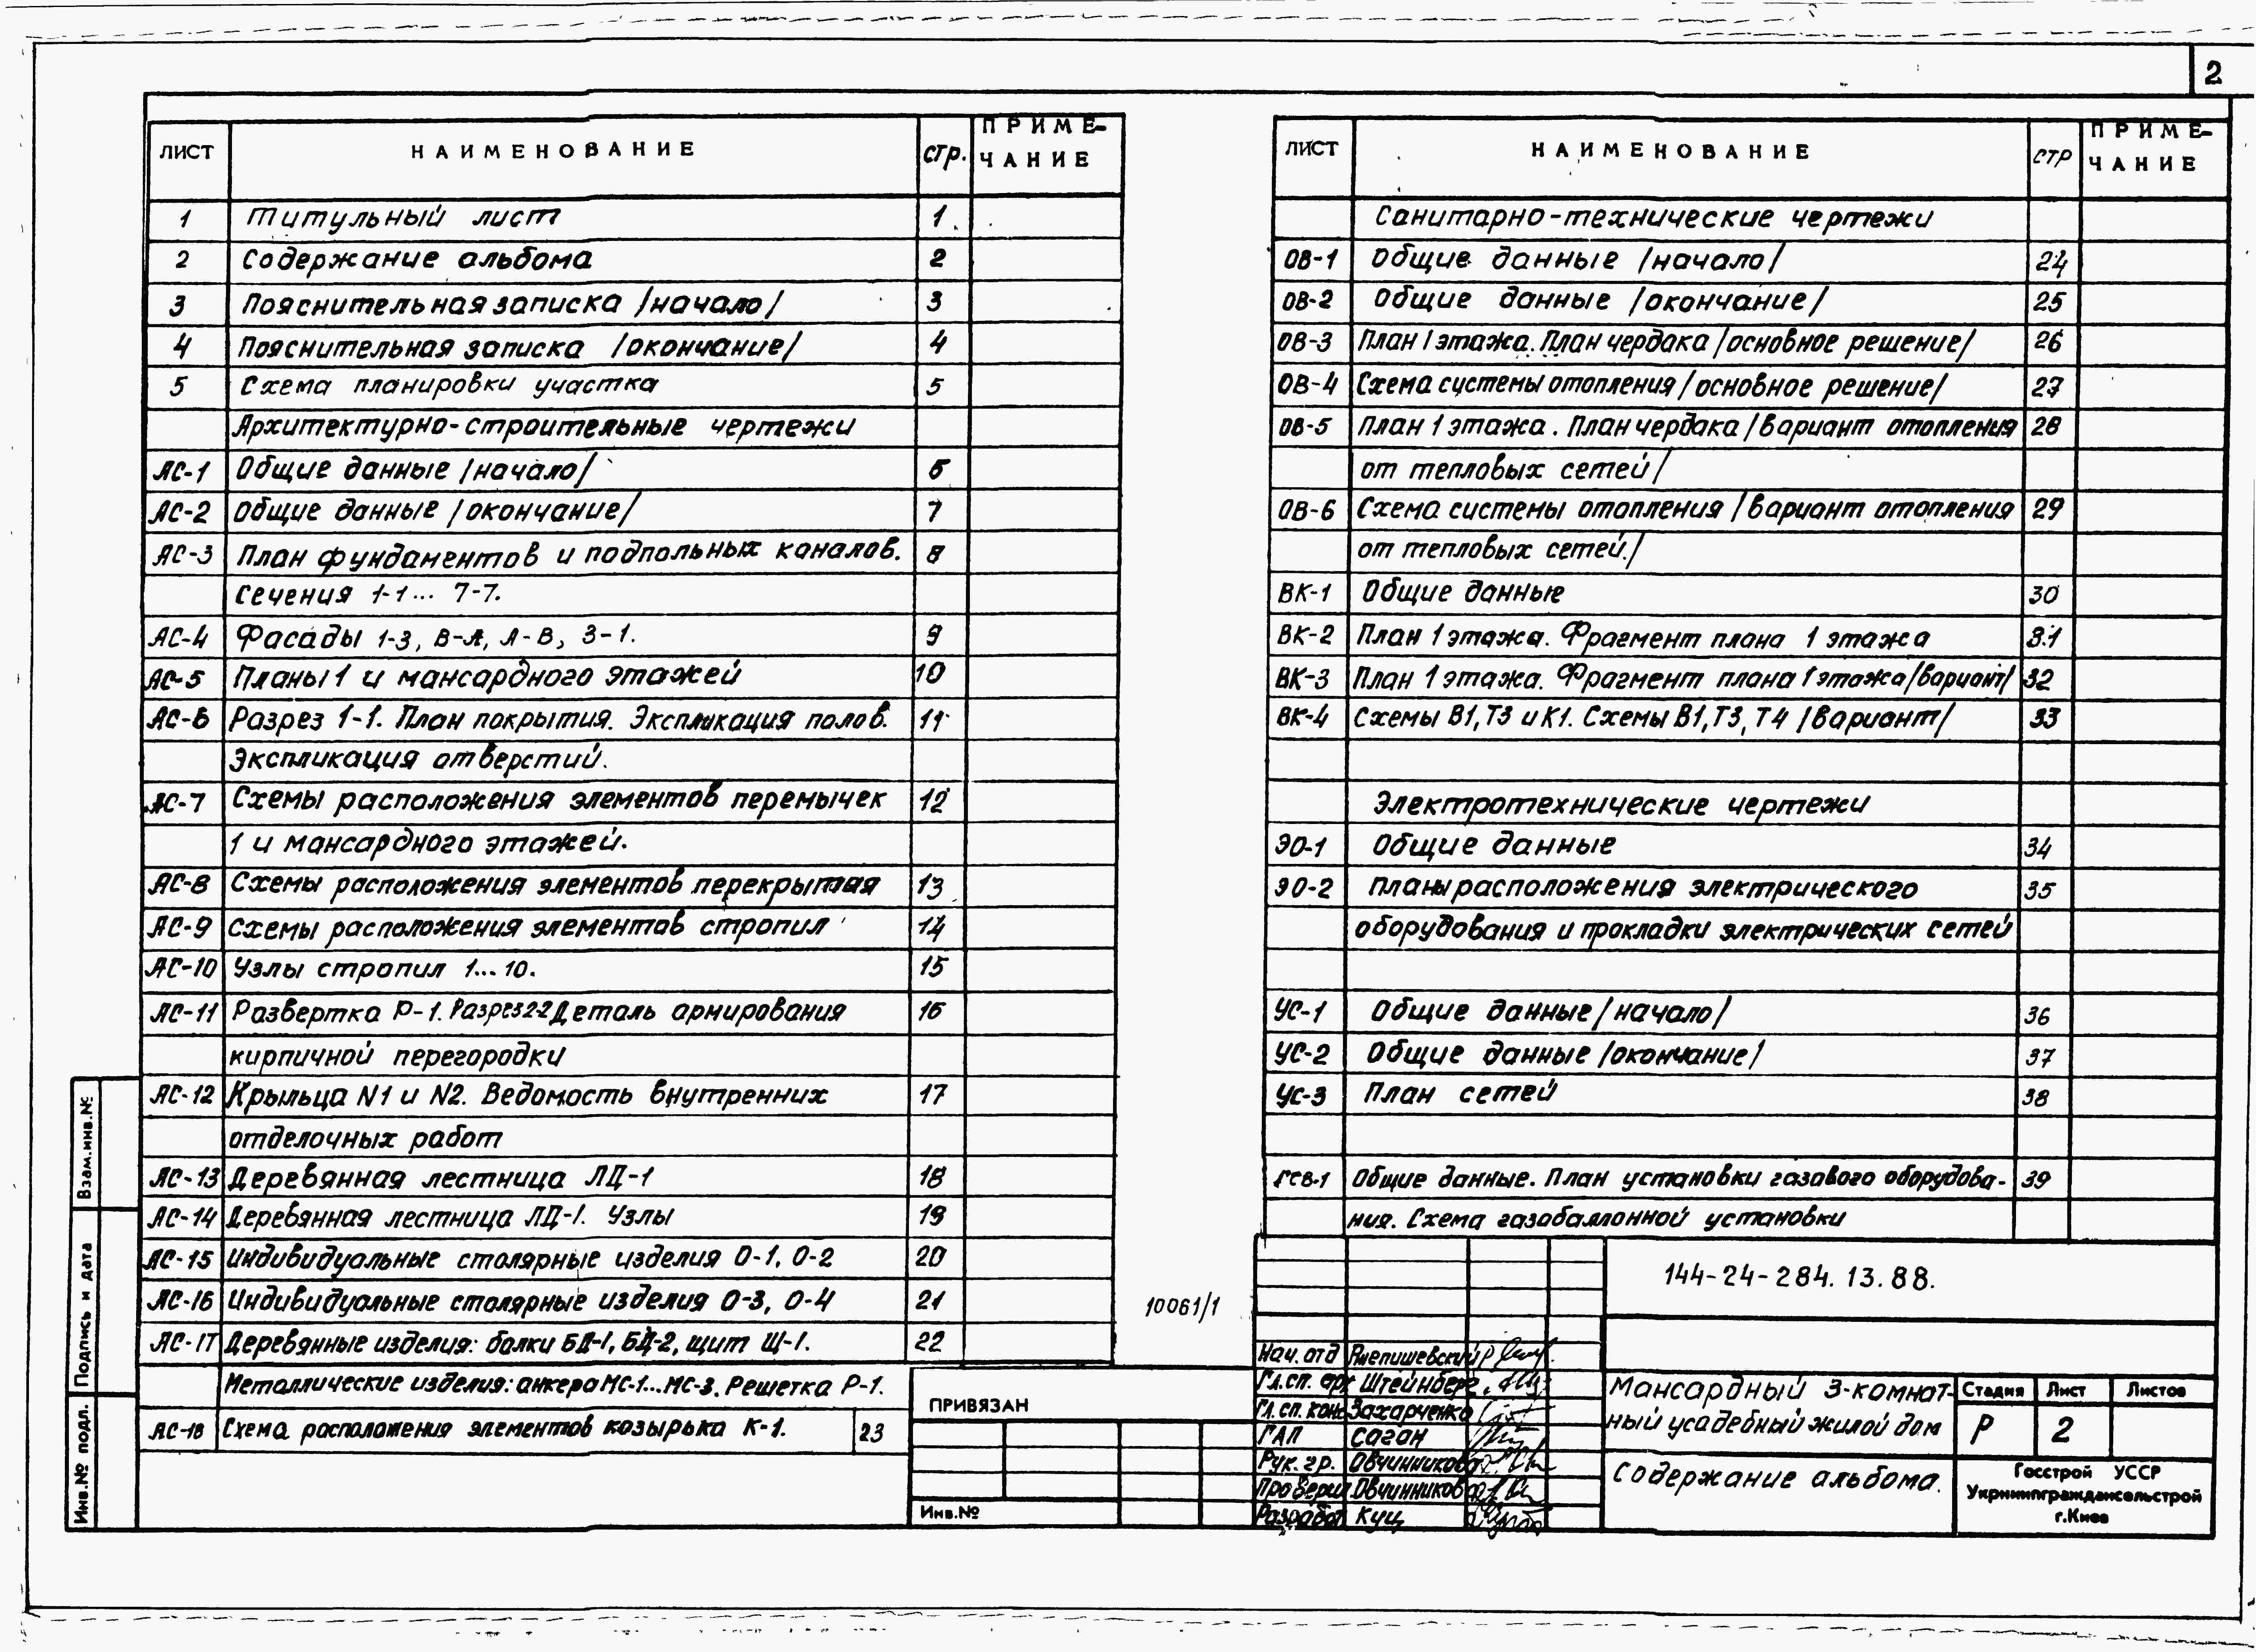 2
ЛИСТ НАИМЕНОВАНИЕ стр. ПРИМЕ-
ЧАНИЕ
1 титульный лист 1
2 Содержание альбома 2
3 Пояснительная записка /начало/ 3
4 Пояснительная записка /окончание/ 4
5 Схема планировки участка 5
Архитектурно-строительные чертежи
АС-1 Общие данные /начало/ 6
АС-2 Общие данные /окончание/ 7
АС-3 План фундаментов и подпольных каналов. 8
Сечения 1-1... 7-7.
АС-4 Фасады 1-3, В-А, А-В, 3-1. 9
АС-5 Планы 1 и мансардного этажей 10
АС-6 Разрез 1-1. План покрытия. Экспликация полов. 11
Экспликация отверстий.
АС-7 Схемы расположения элементов перемычек 12
1 и мансардного этажей.
АС-8 Схемы расположения элементов перекрытая 13
АС-9 Схемы расположения элементов стропил 14
АС-10 Узлы стропил 1...10. 15
АС-11 Развертка Р-1. Разрез 2-2 Деталь армирования 16
кирпичной перегородки
АС-12 Крыльца N1 и N2. Ведомость внутренних 17
отделочных работ
АС-13 Деревянная лестница ЛД-1 18
АС-14 Деревянная лестница ЛД-1. Узлы 19
АС-15 Индивидуальные столярные изделия О-1, О-2 20
АС-16 Индивидуальные столярные изделия О-3, О-4 21
АС-17 Деревянные изделия: балки БД-1, БД-2, щит Щ-1. 22
Металлические изделия: анкера МС-1...МС-3. Решетка Р-1.
АС-18 Схема расположения элементов козырька К-1. 23
ЛИСТ НАИМЕНОВАНИЕ СТР ПРИМЕ-
ЧАНИЕ
Санитарно-технические чертежи
ОВ-1 Общие данные /начало/ 24
ОВ-2 Общие данные /окончание/ 25
ОВ-3 План 1 этажа. План чердака /основное решение/ 26
ОВ-4 Схема системы отопления /основное решение/ 27
ОВ-5 План 1 этажа. План чердака /вариант отопления 28
от тепловых сетей/
ОВ-6 Схема системы отопления /вариант отопления 29
от тепловых сетей./
ВК-1 Общие данные 30
ВК-2 План 1 этажа. Фрагмент плана 1 этажа 31
ВК-3 План 1 этажа. Фрагмент плана 1 этажа /вариант/ 32
ВК-4 Схемы В1, Т3 и К1. Схемы В1, Т3, Т4 /вариант/ 33
Электротехнические чертежи
ЭО-1 Общие данные 34
ЭО-2 Планы расположения электрического 35
оборудования и прокладки электрических сетей
УС-1 Общие данные /начало/ 36
УС-2 Общие данные /окончание/ 37
УС-3 План сетей 38
ГСВ-1 Общие данные. План установки газового оборудова- 39
ния. Схема газобаллонной установки
10061/1
144-24-284. 13. 88.
Нач. отд
Гл. сп. арх Штейнберг
Гл. сп. конс Захарченко
ГАП Саган
Рук. гр. Овчинникова
Провери Овчинникова
Разработ Кущ
Мансардный 3-комнат-
ный усадебный жилой дом
Стадия Лист Листов
Р 2
Содержание альбома.
Госстрой УССР
Укрниипграждансельстрой
г.Киев
ПРИВЯЗАН
Инв.№
Взам.инв.№
Подпись и дата
Инв.№ подл.